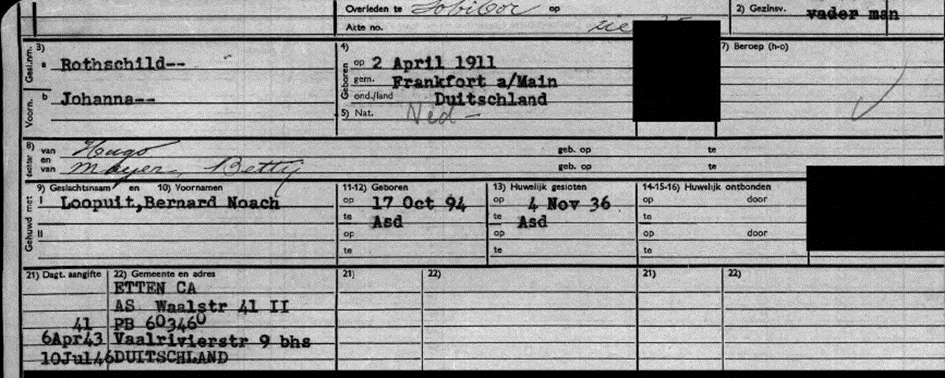 Overleden te Sobibor op
Akte no. zie
2) Gezinsv. vader man
Gesl.nm. 3) a Rothschild--
Voorn. b Johanna--
4) Geboren op 2 April 1911
gem. Frankfort a/Main
ond./land Duitschland
5) Nat. Ned -
7) Beroep (h-o)
8) van Hugo geb. op te
en van Mayer, Betty geb. op te
Gehuwd met 9) Geslachtsnaam en 10) Voornamen
I Loopuit,Bernard Noach
II
11-12) Geboren
op 17 Oct 94
te Asd
op
te
13) Huwelijk gesloten
op 4 Nov 36
te Asd
op
te
14-15-16) Huwelijk ontbonden
op door
te
op door
te
21) Dagt. aangifte 22) Gemeente en adres 21) 22) 21) 22)
ETTEN CA
AS Waalstr 41 II
41 PB 60346⁰
6Apr43 Vaalrivierstr 9 bhs
10Jul46DUITSCHLAND